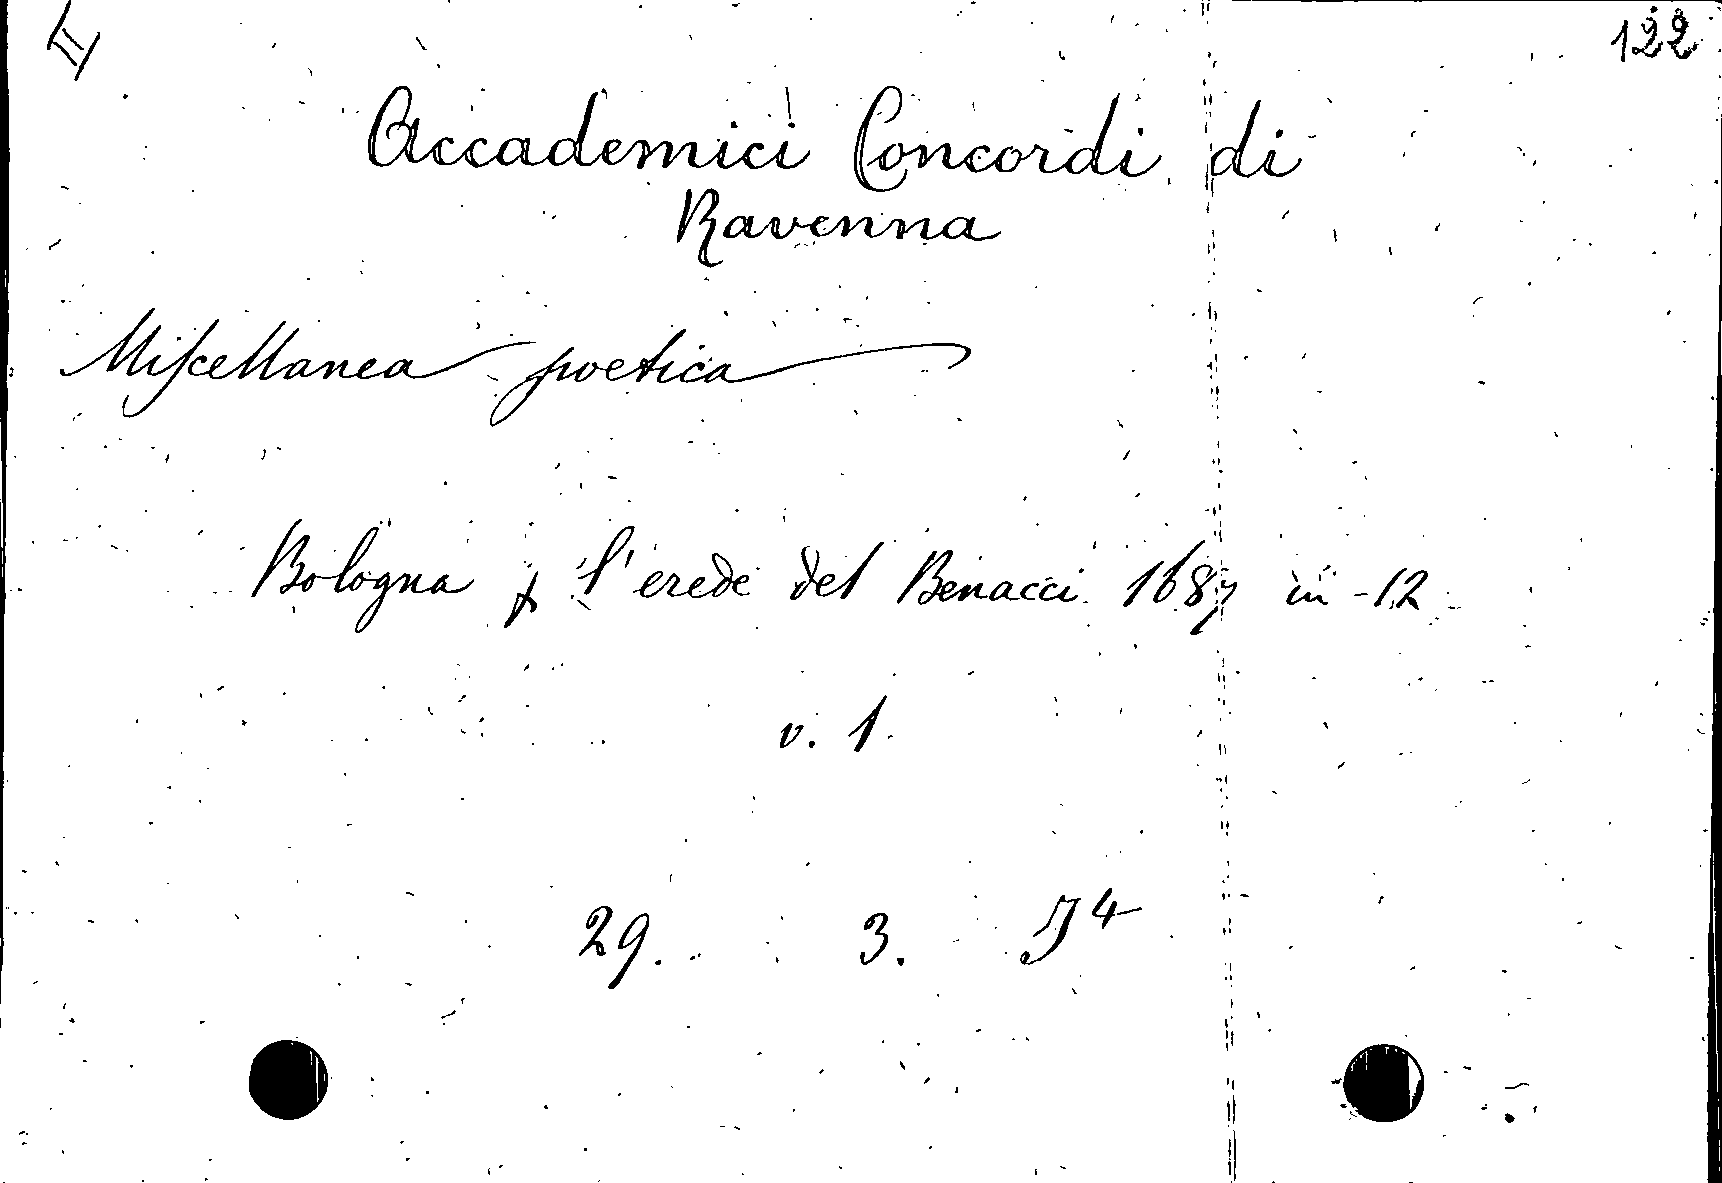 II
122
Accademici Concordi di
Ravenna
Miscellanea poetica
Bologna p l'erede del Benacci 1687 in -12
v. 1.
29. 3. J4